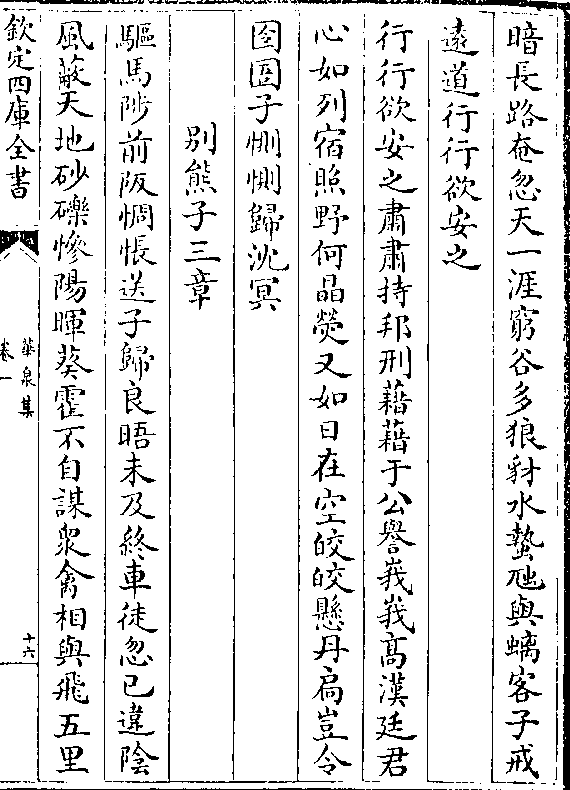 暗長路奄忽天一涯窮谷多狼豺水蟄虺與螭客子戒
遠道行行欲安之
行行欲安之肅肅持邦刑藉藉于公譽峩峩髙漢廷君
心如列宿照野何晶熒又如日在空皎皎懸丹扃豈令
囹圄子惻惻歸沈冥
别熊子三章
驅馬陟前阪惆悵送子歸良晤未及終車徒忽已違陰
風蔽天地砂礫慘陽暉葵藿不自謀眾禽相與飛五里
欽定四庫全書
華泉集
卷一
十六